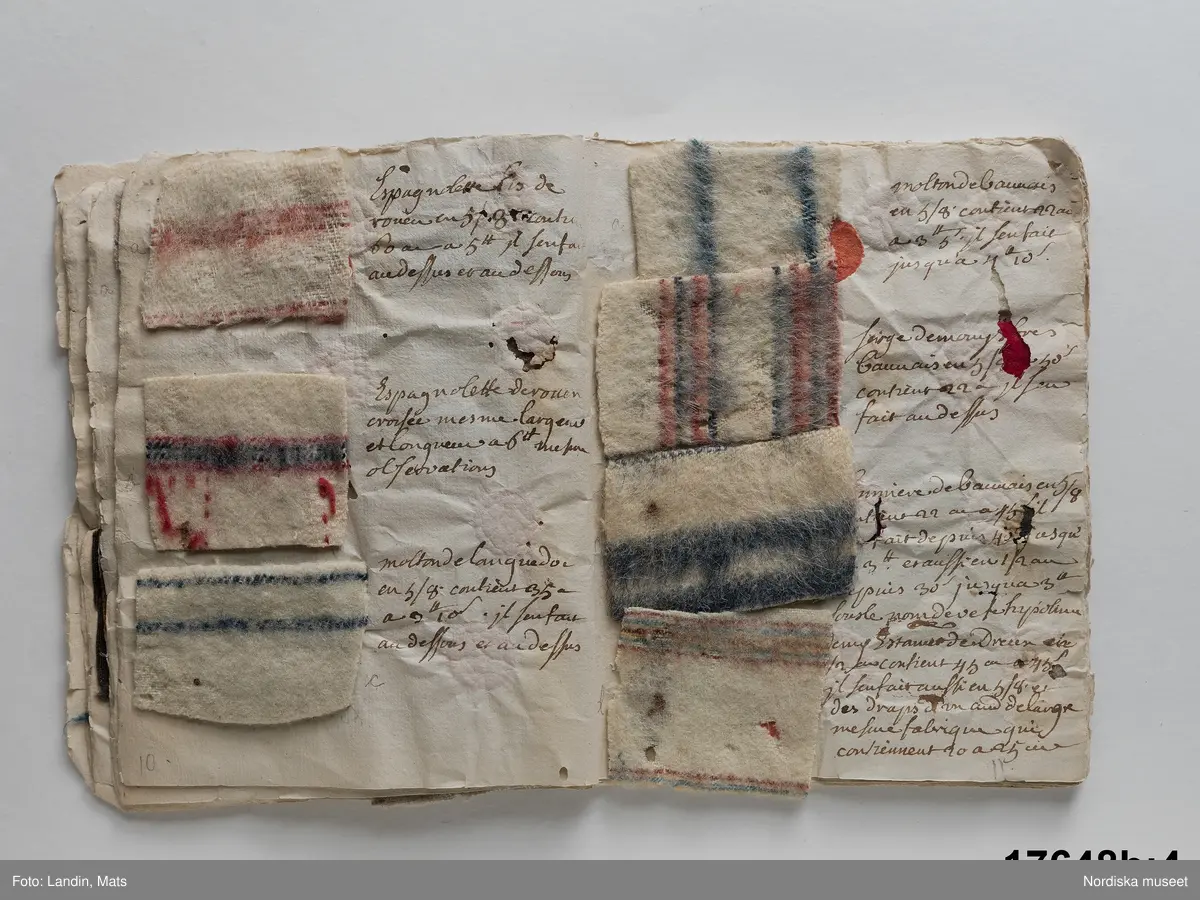 Espagnolette lis de
rouen en 5/8 contt
60 au a 5tt jl senfai
audessus et au dessous
Espagnolette de rouen
croisée mesme largeur
et longueur a 6tt mesme
observations
molton de languedoc
en 5/8 contient 35 a
a 3tt 10s jl senfait
au dessous et au dessus
10
molton de bauuais
en 5/8 contient 22 au
a 3tt 5s jl senfait
jusqua 4tt 10s
serge de mouy
bauuais en 5/8
contient 22 a jl sen
fait au dessus
de bauuais en 5/8
22 au a 45s jl
fait depuis 40s jusqu
3tt et aussi en 1/2 au
depuis 30s jusqua 3tt
sous le nom de
Estamet de Dreux en
contient 45 au a 45s
jl senfait aussi en 5/8 et
des draps d'un aune de large
mesme fabrique qui
contiennent 20 a 25 au
11
17648b:4
Foto: Landin, Mats
Nordiska museet